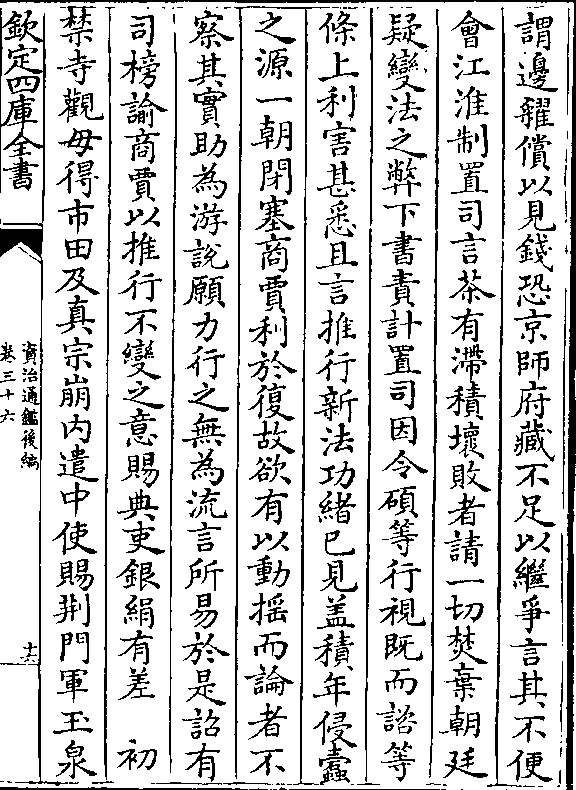 謂邊糴償以見錢恐京師府藏不足以繼爭言其不便
會江淮制置司言茶有滯積壞敗者請一切焚棄朝廷
疑變法之弊下書責計置司因令碩等行視既而諮等
條上利害甚悉且言推行新法功緒已見盖積年侵蠹
之源一朝閉塞商賈利於復故欲有以動揺而論者不
察其實助為游說願力行之無為流言所易於是詔有
司榜諭商賈以推行不變之意賜典吏銀絹有差　初
禁寺觀毋得市田及真宗崩内遣中使賜荆門軍玉泉
欽定四庫全書
資治通鑑後編
卷三十六
十六